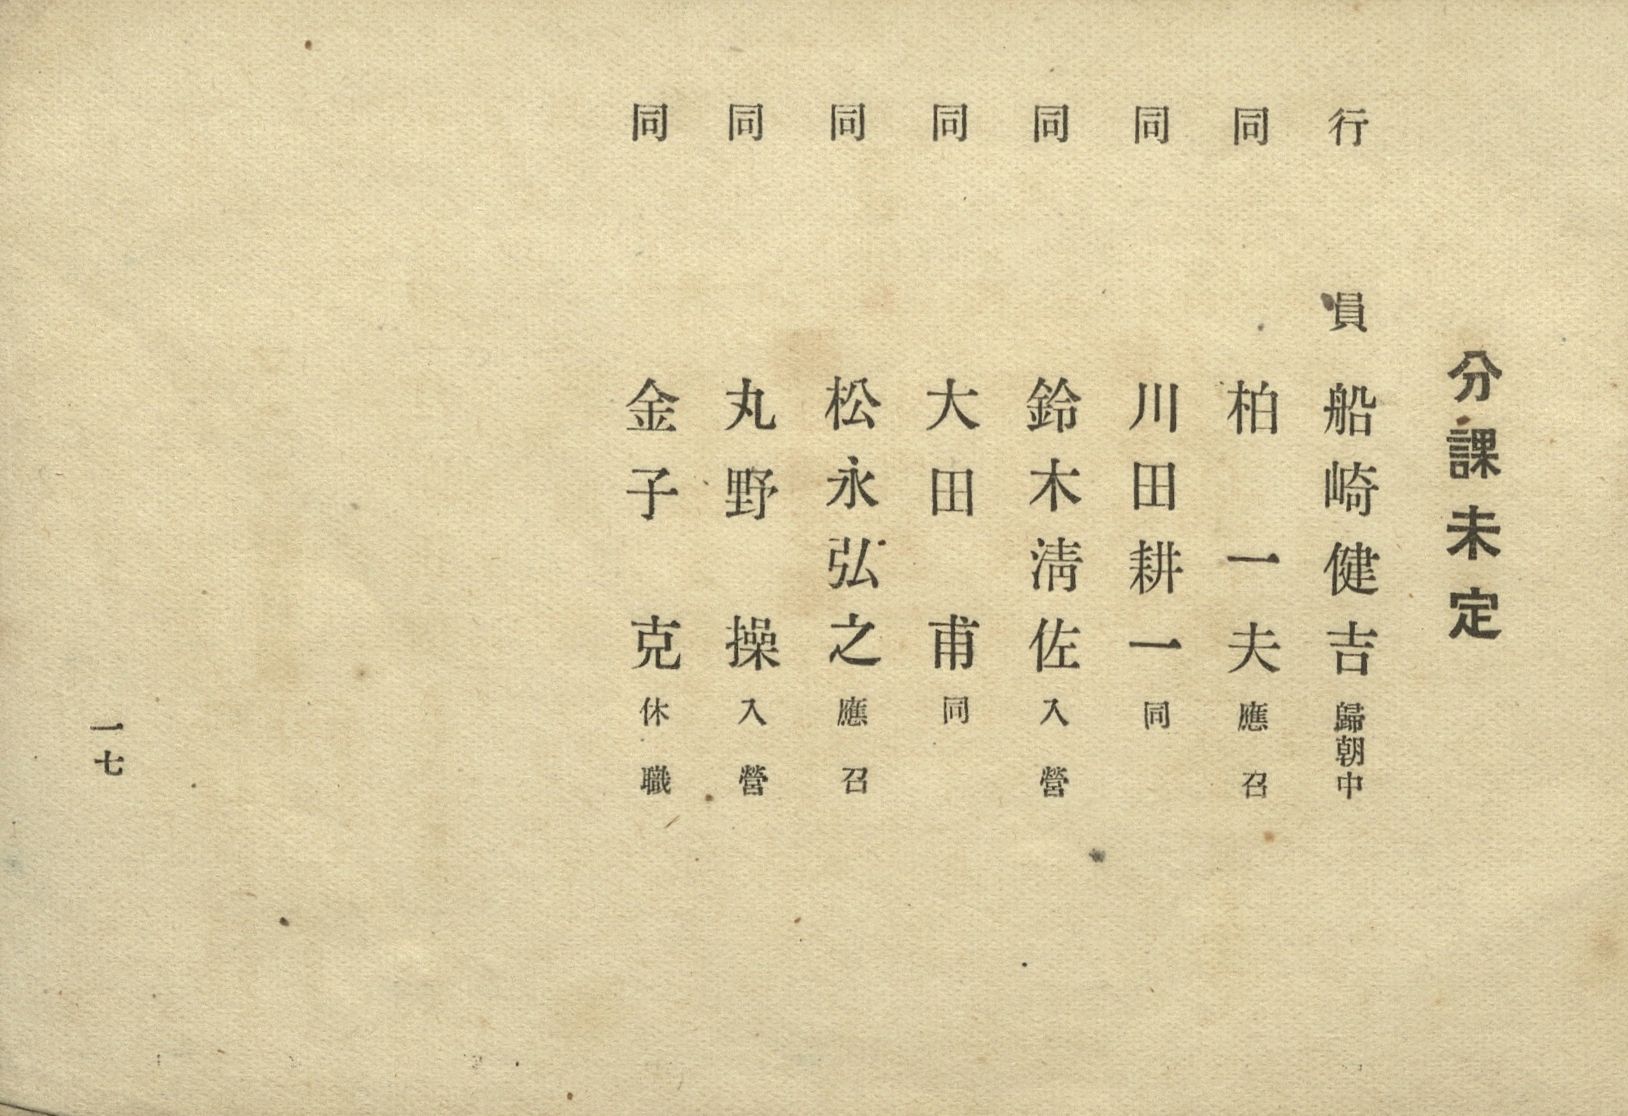 分課未定
行員 船崎健吉 歸朝中
同 柏一夫 應召
同 川田耕一 同
同 鈴木淸佐 入營
同 大田甫 同
同 松永弘之 應召
同 丸野操 入營
同 金子克 休職
一七